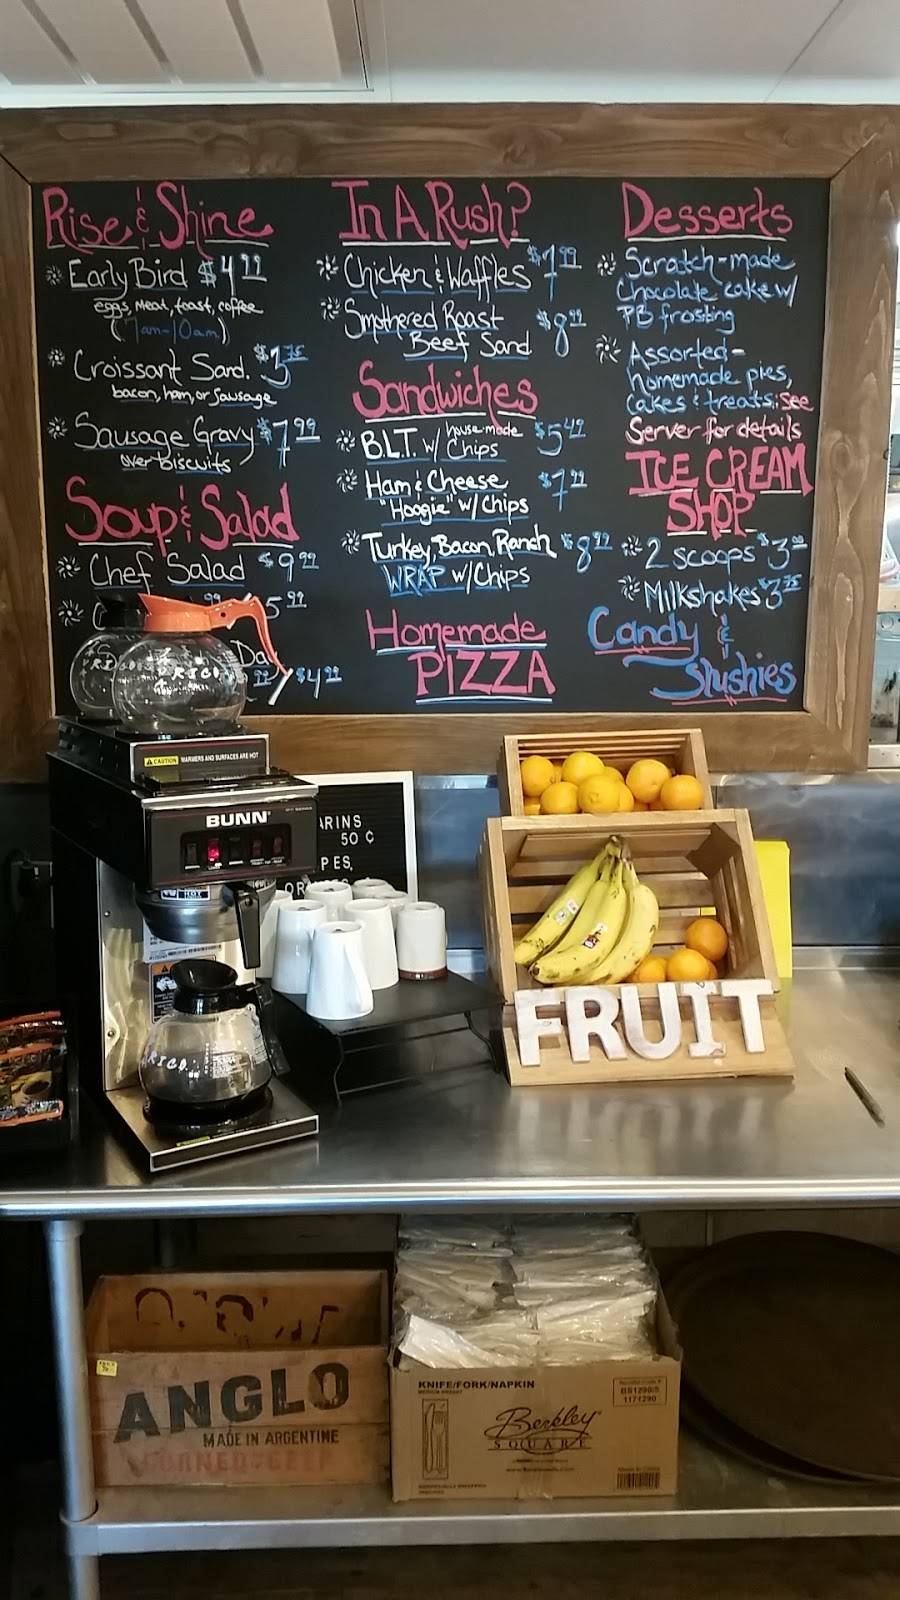 Rise & Shine
Early Bird $4.99
eggs, meat, toast, coffee
(7am-10am)
Croissant Sand. $3.75
bacon, ham, or sausage
Sausage Gravy $7.99
over biscuits
Soup & Salad
Chef Salad $9.99
5.99
Da
$4.99
In A Rush?
Chicken & Waffles $7.99
Smothered Roast $8.99
Beef Sand
Sandwiches
B.L.T. w/ house-made Chips $5.49
Ham & Cheese $7.99
"Hoogie" w/ Chips
Turkey, Bacon, Ranch $8.99
WRAP w/ Chips
Homemade
PIZZA
Desserts
Scratch-made
Chocolate cake w/
PB frosting
Assorted-
homemade pies,
cakes & treats: See
Server for details
ICE CREAM
SHOP
2 scoops $3.00
Milkshakes $3.75
Candy &
Slushies
CAUTION WARMERS AND SURFACES ARE HOT
BUNN
ARINS
50 ¢
PES,
FRUIT
ANGLO
MADE IN ARGENTINE
CORNED BEEF
KNIFE/FORK/NAPKIN
Berkley
SQUARE
BS1290/5
1171290